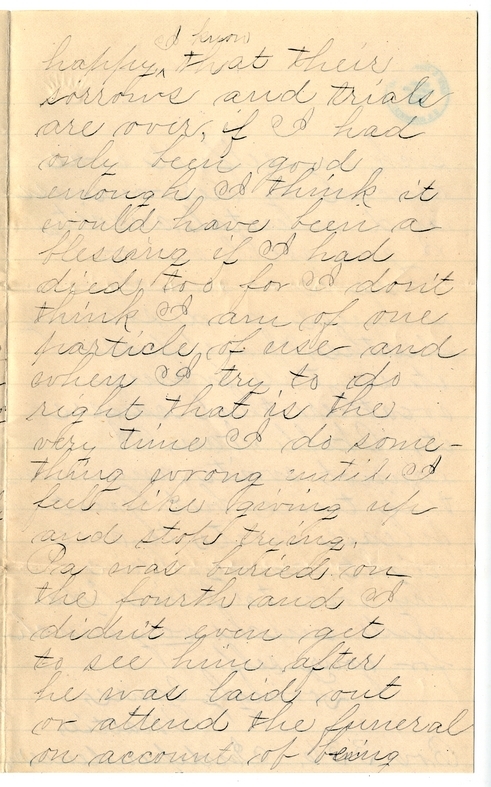 I know
happy, that their
sorrows and trials
are over, if I had
only been good
enough I think it
would have been a
blessing if I had
died too for I don't
think I am of one
particle of use and
when I try to do
right that is the
very time I do some-
thing wrong until I
feel like giving up
and stop trying.
Pa was buried on
the fourth and I
didn't even get
to see him after
he was laid out
or attend the funeral
on account of being